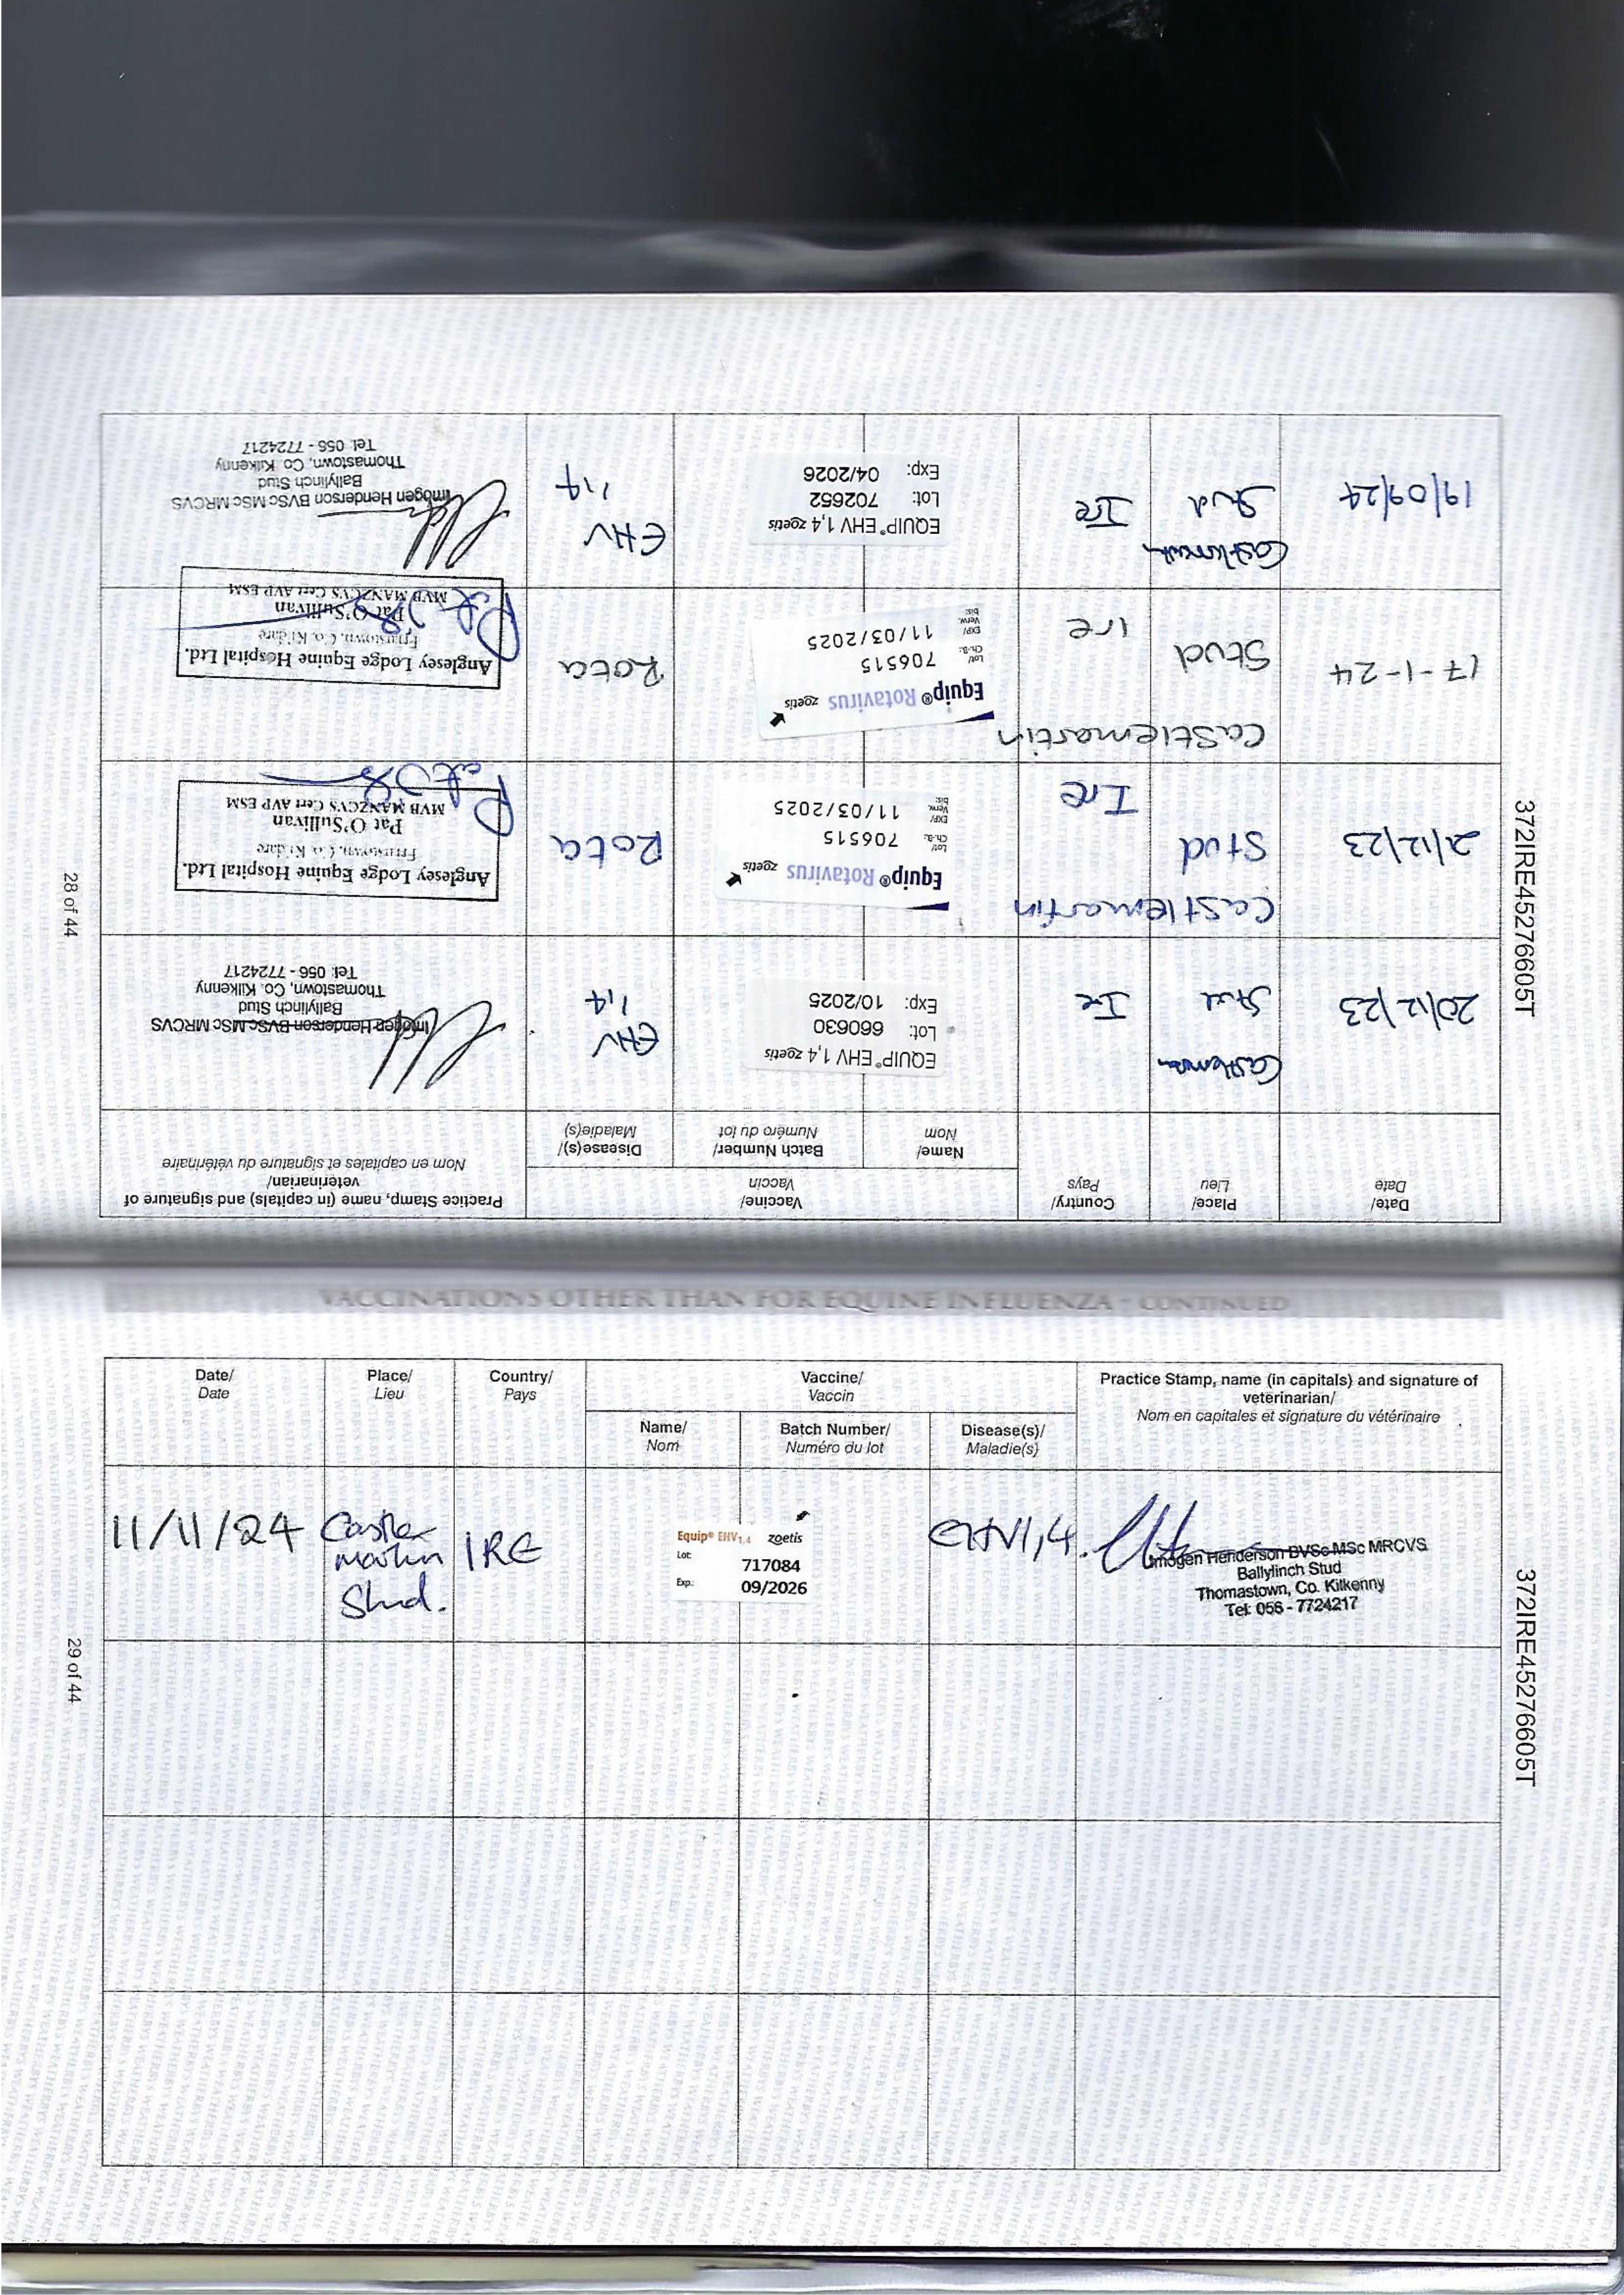 28 of 44
372IRE45276605T
Date/
Date
Place/
Lieu
Country/
Pays
Vaccine/
Vaccin
Name/
Nom
Batch Number/
Numéro du lot
Disease(s)/
Maladie(s)
Practice Stamp, name (in capitals) and signature of
veterinarian/
Nom en capitales et signature du vétérinaire
20/12/23
Stud
Ire
EQUIP® EHV 1,4 zoetis
Lot: 660630
Exp: 10/2025
EHV
1,4
Imogen Henderson BVSc MSc MRCVS
Ballylinch Stud
Thomastown, Co. Kilkenny
Tel: 056 - 7724217
21/12/23
Castlemartin
Stud
Ire
Equip® Rotavirus zoetis
Lot/
Ch.-B.: 706515
EXP/
Verw.
bis: 11/03/2025
Rota
Anglesey Lodge Equine Hospital Ltd.
Co. Kildare
Pat O'Sullivan
MVB MANZCVS Cert AVP ESM
17-1-24
Castlemartin
Stud
Ire
Equip® Rotavirus zoetis
Lot/
Ch.-B.: 706515
EXP/
Verw.
bis: 11/03/2025
Rota
Anglesey Lodge Equine Hospital Ltd.
Co. Kildare
Pat O'Sullivan
MVB MANZCVS Cert AVP ESM
19/09/24
Castlemartin
Stud
Ire
EQUIP® EHV 1,4 zoetis
Lot: 702652
Exp: 04/2026
EHV
1,4
Imogen Henderson BVSc MSc MRCVS
Ballylinch Stud
Thomastown, Co. Kilkenny
Tel: 056 - 7724217
VACCINATIONS OTHER THAN FOR EQUINE INFLUENZA - CONTINUED
Date/
Date
Place/
Lieu
Country/
Pays
Vaccine/
Vaccin
Name/
Nom
Batch Number/
Numéro du lot
Disease(s)/
Maladie(s)
Practice Stamp, name (in capitals) and signature of
veterinarian/
Nom en capitales et signature du vétérinaire
11/11/24
Castle
martin
Stud.
IRE
Equip® EHV1,4 zoetis
Lot: 717084
Exp.: 09/2026
EHV1,4.
Imogen Henderson BVSc MSc MRCVS
Ballylinch Stud
Thomastown, Co. Kilkenny
Tel: 056 - 7724217
29 of 44
372IRE45276605T